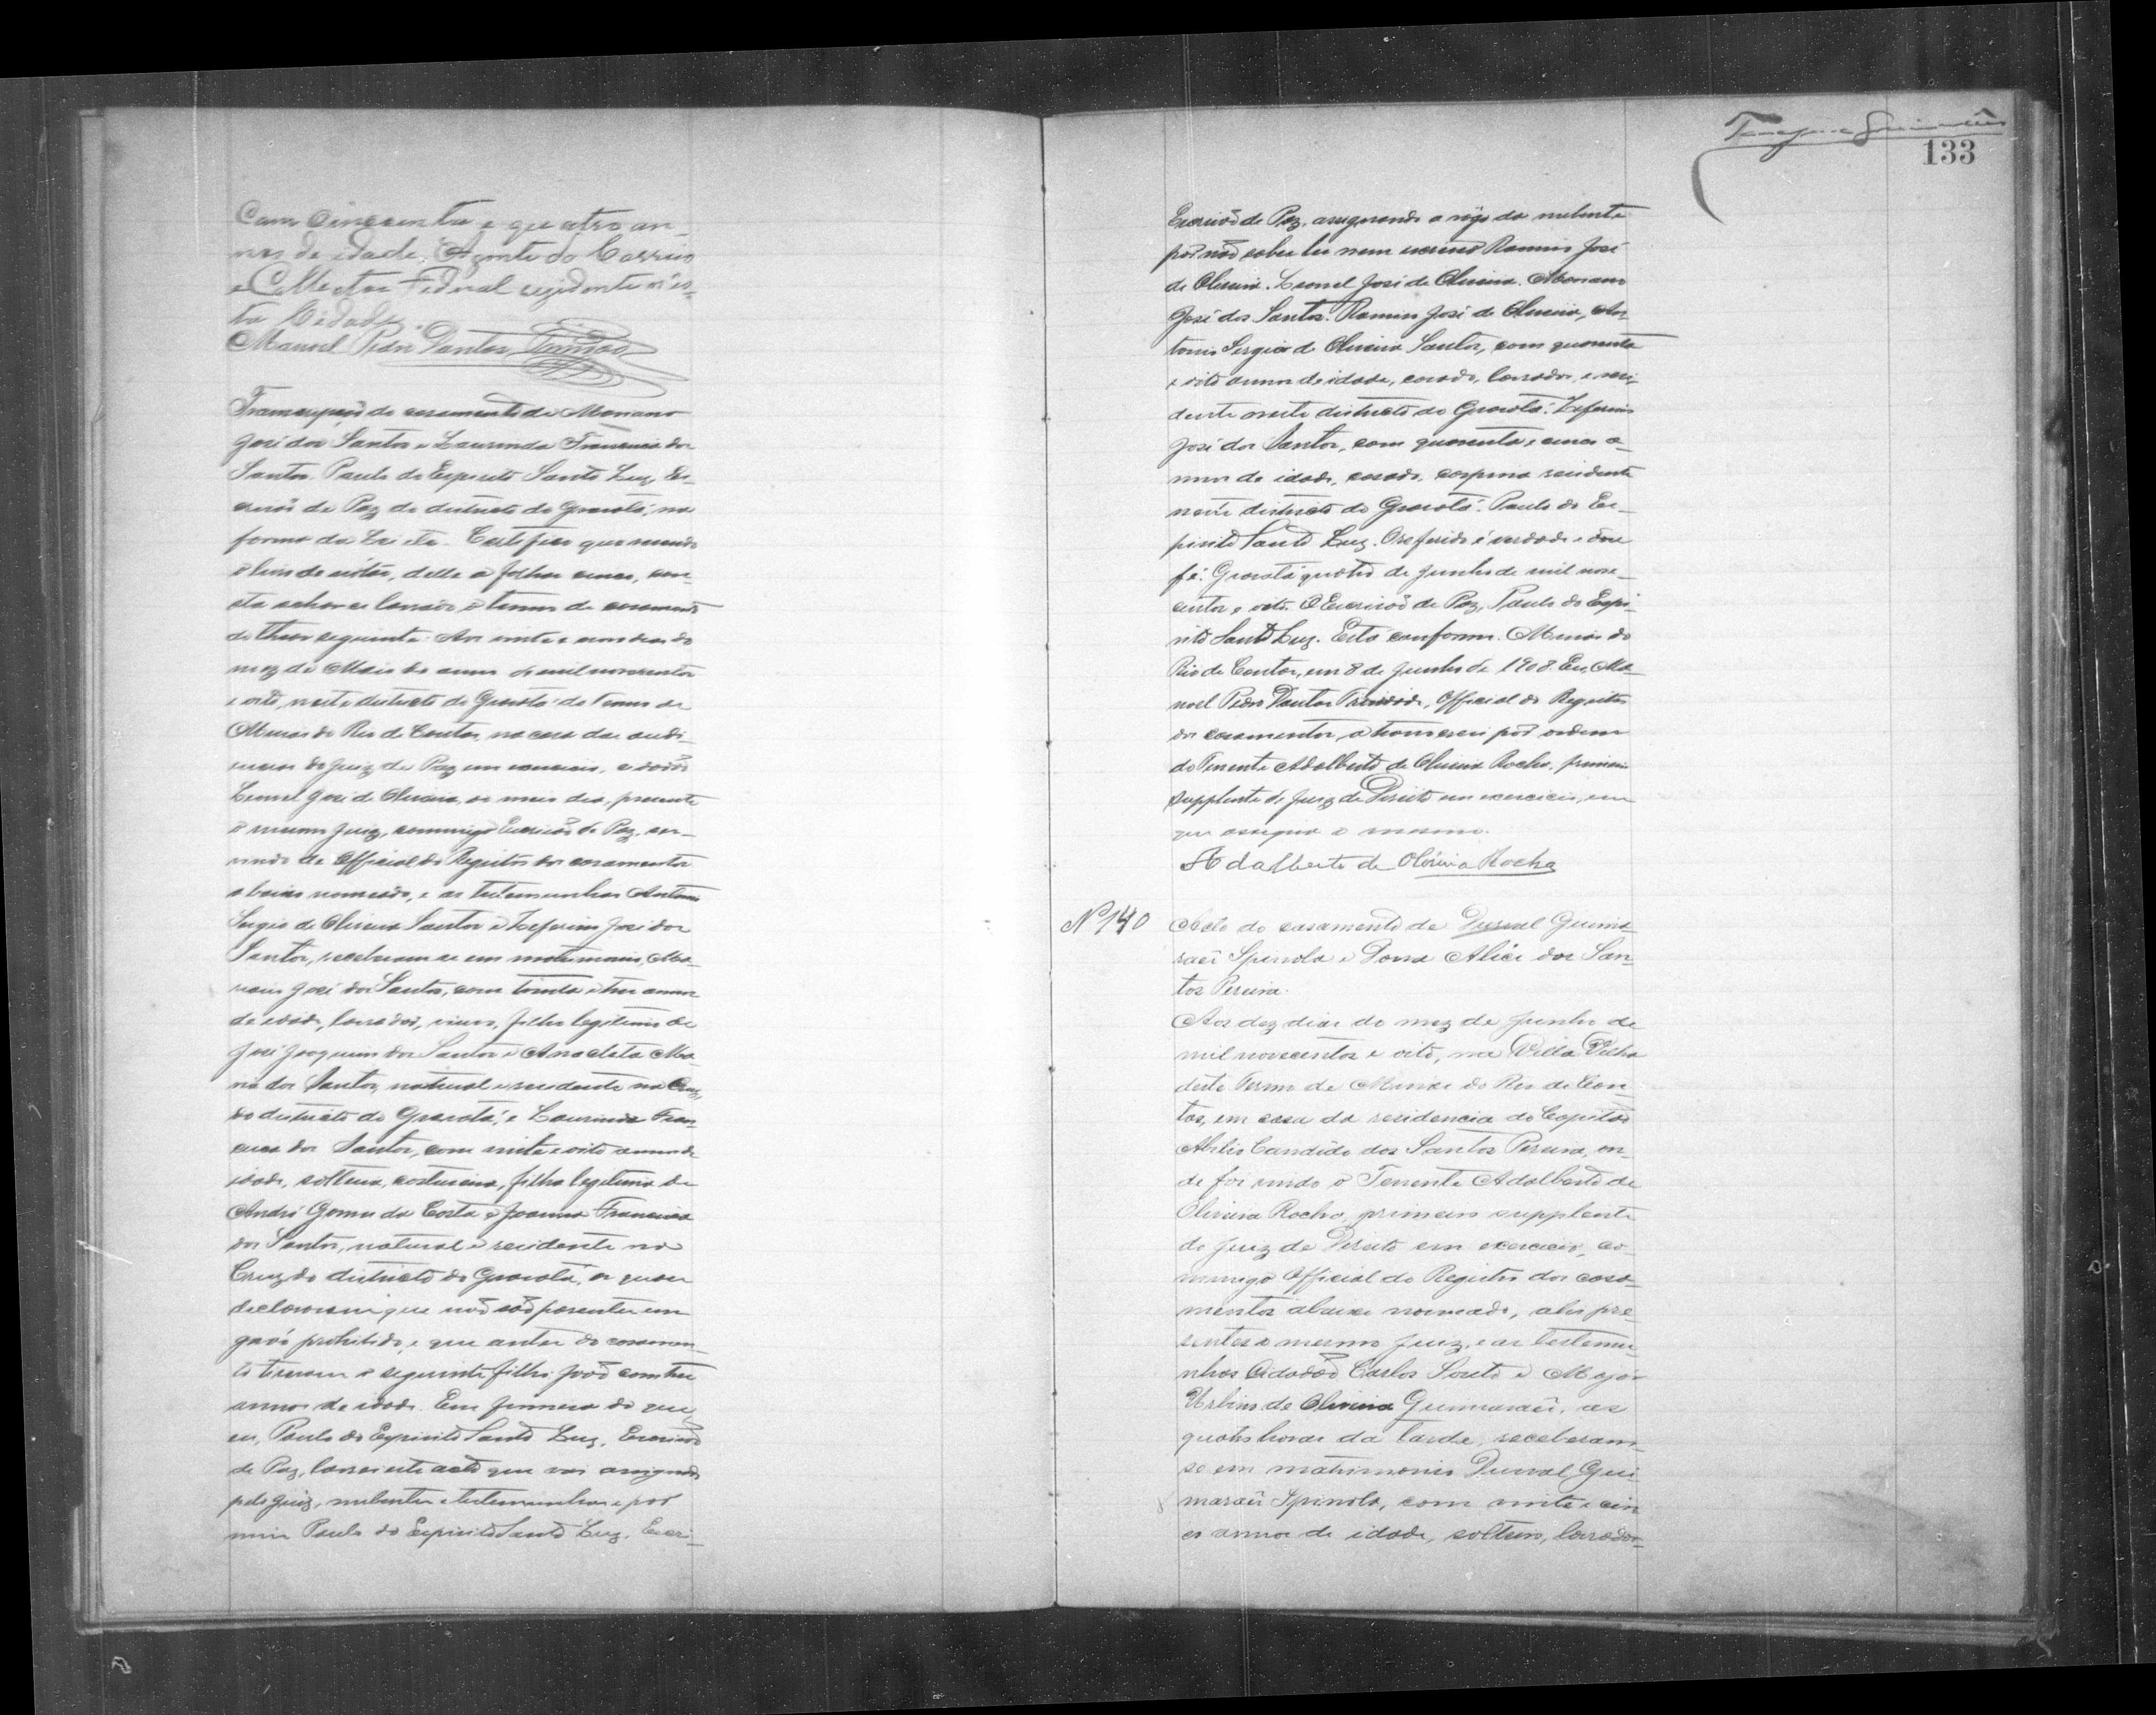 Com cincoenta e quatro an-
nos de idade, Agente do Correio
e Collector Federal residente n'es-
ta Cidade.
Manoel Pedro Dantas Trindade
Transcripção do casamento de Mariano
José dos Santos e Laurinda Francisca dos
Santos. Paulo do Espirito Santo Luz, Es-
crivão de Paz do districto do Gravatá, na
forma da Lei etc. Certifico que revendo
o livro de notas, delle a folhas cinco, con-
sta achar-se lavrado o termo de casamento
do theor seguinte: Aos vinte e nove dias do
mez de Maio do anno de mil novecentos
e oito, neste districto do Gravatá do Termo de
Minas do Rio de Contas, na casa das audi-
encias do Juiz de Paz em exercicio, cidadão
Leonel José de Oliveira, ao meio dia, presente
o mesmo Juiz, commigo Escrivão de Paz, ser-
vindo de Official do Registro dos casamentos
abaixo nomeado, e as testemunhas Antonio
Sergio de Oliveira Santos e Zeferino José dos
Santos, receberam-se em matrimonio, Ma-
riano José dos Santos, com trinta e tres annos
de idade, lavrador, viuvo, filho legitimo de
José Joaquim dos Santos e Anacleta Ma-
ria dos Santos, natural e residente na Cruz,
do districto do Gravatá, e Laurinda Fran-
cisca dos Santos, com vinte e oito annos de
idade, solteira, costureira, filha legitima de
André Gomes da Costa e Joanna Francisca
dos Santos, natural e residente na
Cruz do districto do Gravatá, os quaes
declararam que não são parentes em
gráo prohibido, e que antes do casamen-
to tiveram o seguinte filho: João com tres
annos de idade. Em firmeza do que
eu, Paulo do Espirito Santo Luz, Escrivão
de Paz, lavrei este acto que vai assignado
pelo Juiz, nubentes e testemunhas e por
mim Paulo do Espirito Santo Luz, Escri-
133
Escrivão de Paz, assignando a rogo da nubente
por não saber ler nem escrever Ramiro José
de Oliveira. Leonel José de Oliveira. Mariano
José dos Santos. Ramiro José de Oliveira, An-
tonio Sergio de Oliveira Santos, com quarenta
e oito annos de idade, casado, lavrador, e resi-
dente neste districto do Gravatá. Zeferino
José dos Santos, com quarenta e cinco a-
nnos de idade, casado, carpina residente
neste districto do Gravatá. Paulo do Es-
pirito Santo Luz. O referido é verdade e dou
fé. Gravatá quatro de Junho de mil nove-
centos e oito. O Escrivão de Paz, Paulo do Espi-
rito Santo Luz. Está conforme. Minas do
Rio de Contas, em 8 de Junho de 1908. Eu, Ma-
noel Pedro Dantas Trindade, Official do Registro
dos casamentos, a transcrevi por ordem
do Tenente Adalberto de Oliveira Rocha, primeiro
supplente do Juiz de Direito em exercicio, em
que assigna o mesmo.
Adalberto de Oliveira Rocha
Nº 140
Acto do casamento de Durval Guima-
rães Spinola e Dona Alice dos San-
tos Pereira.
Aos dez dias do mez de Junho de
mil novecentos e oito, na Villa Velha
deste Termo de Minas do Rio de Con-
tas, em casa da residencia do Capitão
Abilio Candido dos Santos Pereira, on-
de foi vindo o Tenente Adalberto de
Oliveira Rocha, primeiro supplente
do Juiz de Direito em exercicio, co-
mmigo Official do Registro dos casa-
mentos abaixo nomeado, ahi pre-
sentes o mesmo Juiz, e as testemu-
nhas Cidadão Carlos Souto e Major
Urbino de Oliveira Guimarães, as
quatro horas da tarde, receberam-
se em matrimonio Durval Gui-
marães Spinola, com vinte e cin-
co annos de idade, solteiro, lavrador